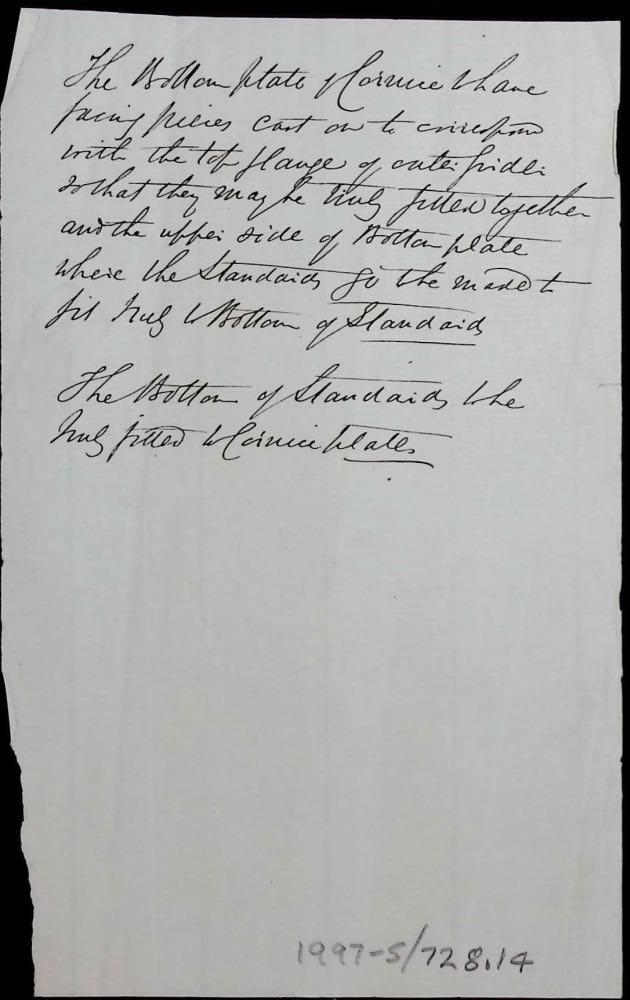 The Bottom plate of Cornice to have
facing pieces cast on to correspond
with the top flange of outer girder
so that they may be truly fitted together
and the upper side of Bottom plate
where the Standards go to be made to
fit truly to Bottom of Standards
The Bottom of Standards to be
truly fitted to Cornice plates
1997-5/728.14